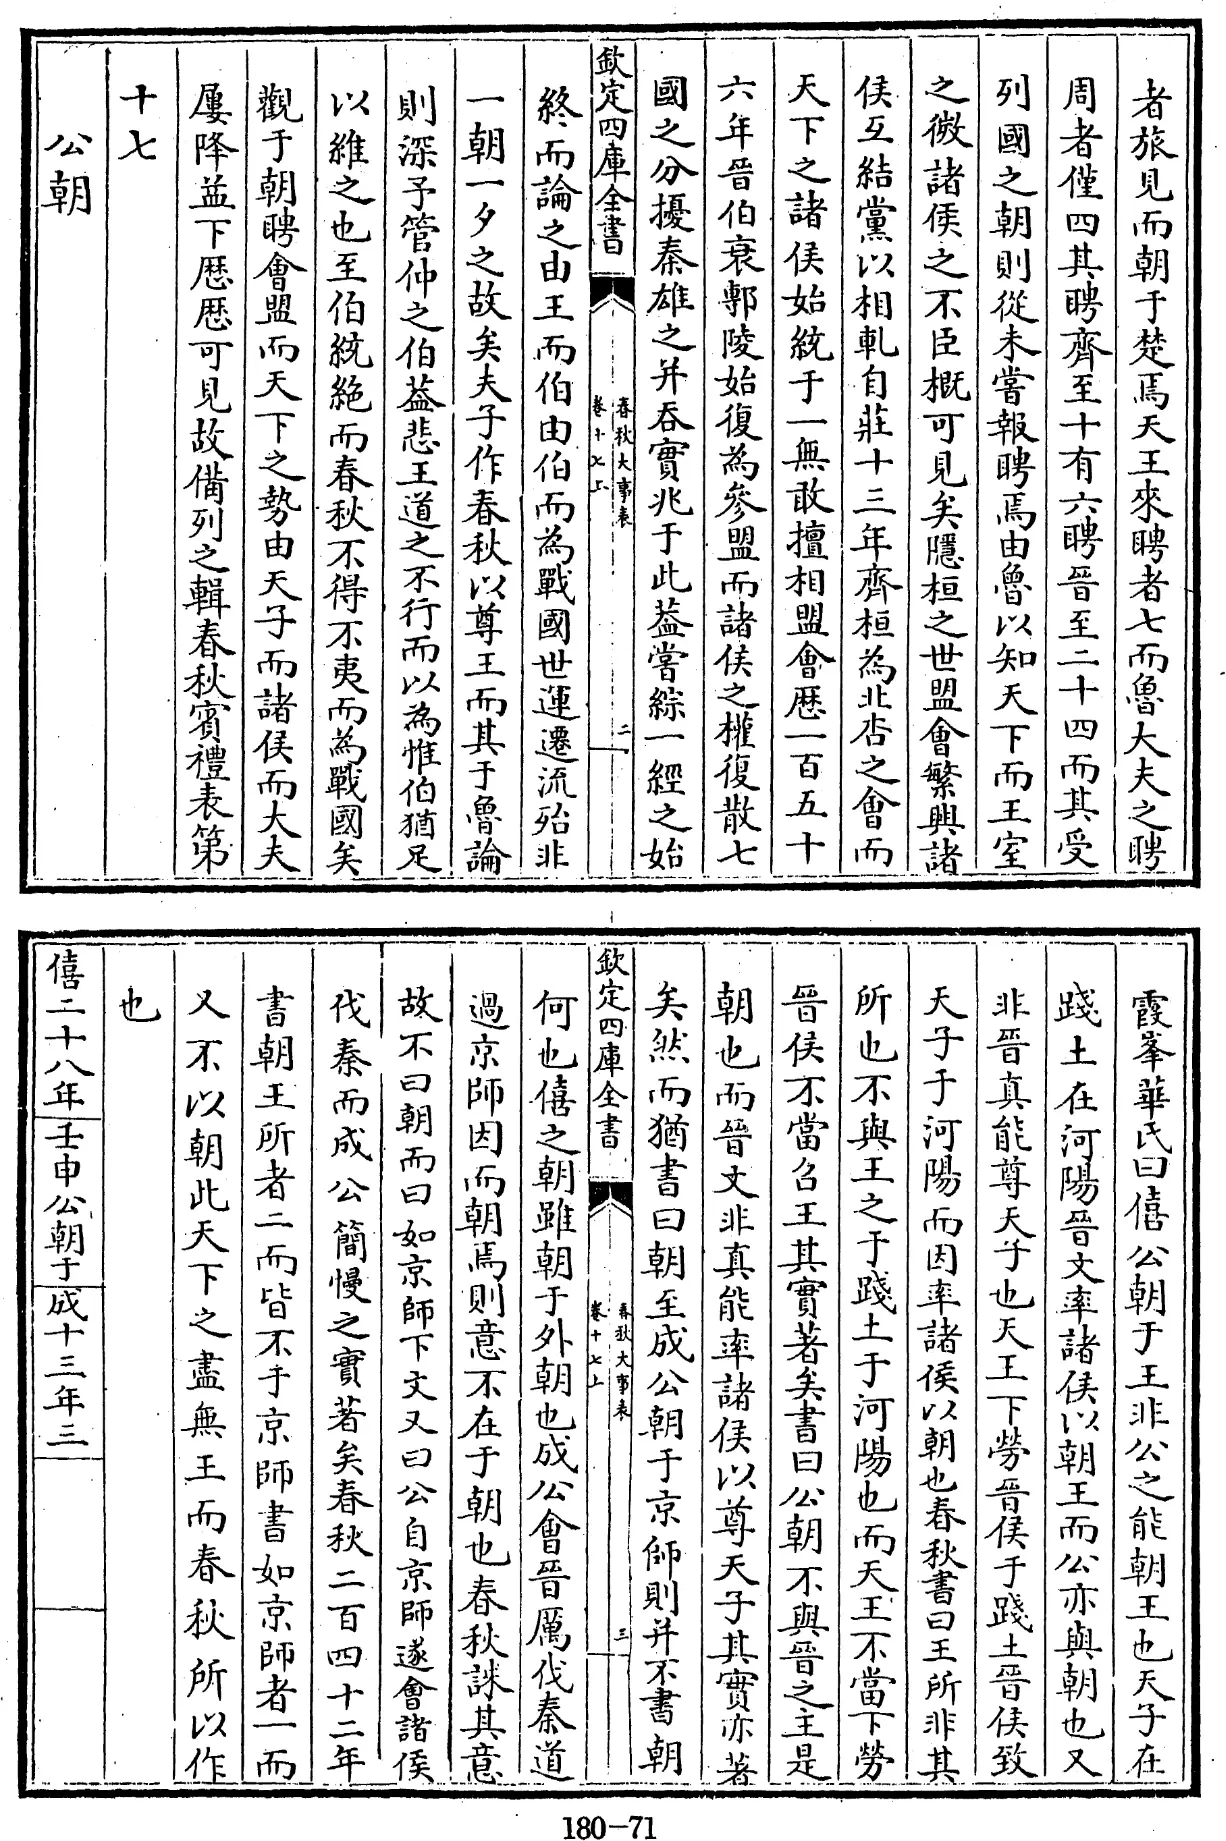 者旅見而朝于楚焉天王來聘者七而魯大夫之聘
周者僅四其聘齊至十有六聘晉至二十四而其受
列國之朝則從未嘗報聘焉由魯以知天下而王室
之微諸侯之不臣概可見矣隱桓之世盟會繁興諸
侯互結黨以相軋自莊十三年齊桓為北杏之會而
天下之諸侯始統于一無敢擅相盟會歴一百五十
六年晉伯衰鄟陵始復為參盟而諸侯之權復散七
國之分擾秦雄之并吞實兆于此葢嘗綜一經之始
欽定四庫全書
春秋大事表
卷十七上
二
終而論之由王而伯由伯而為戰國世運遷流殆非
一朝一夕之故矣夫子作春秋以尊王而其于魯論
則深予管仲之伯葢悲王道之不行而以為惟伯猶足
以維之也至伯統絶而春秋不得不夷而為戰國矣
觀于朝聘會盟而天下之勢由天子而諸侯而大夫
屢降益下歴歴可見故備列之輯春秋賓禮表第
十七
公朝
霞峯華氏曰僖公朝于王非公之能朝王也天子在
踐土在河陽晉文率諸侯以朝王而公亦與朝也又
非晉真能尊天子也天王下勞晉侯于踐土晉侯致
天子于河陽而因率諸侯以朝也春秋書曰王所非其
所也不與王之于踐土于河陽也而天王不當下勞
晉侯不當召王其實著矣書曰公朝不與晉之主是
朝也而晉文非真能率諸侯以尊天子其實亦著
矣然而猶書曰朝至成公朝于京師則并不書朝
欽定四庫全書
春秋大事表
卷十七上
三
何也僖之朝雖朝于外朝也成公會晉厲伐秦道
過京師因而朝焉則意不在于朝也春秋誅其意
故不曰朝而曰如京師下文又曰公自京師遂會諸侯
伐秦而成公簡慢之實著矣春秋二百四十二年
書朝王所者二而皆不于京師書如京師者一而
又不以朝此天下之盡無王而春秋所以作
也
僖二十八年
壬申公朝于
成十三年三
180-71